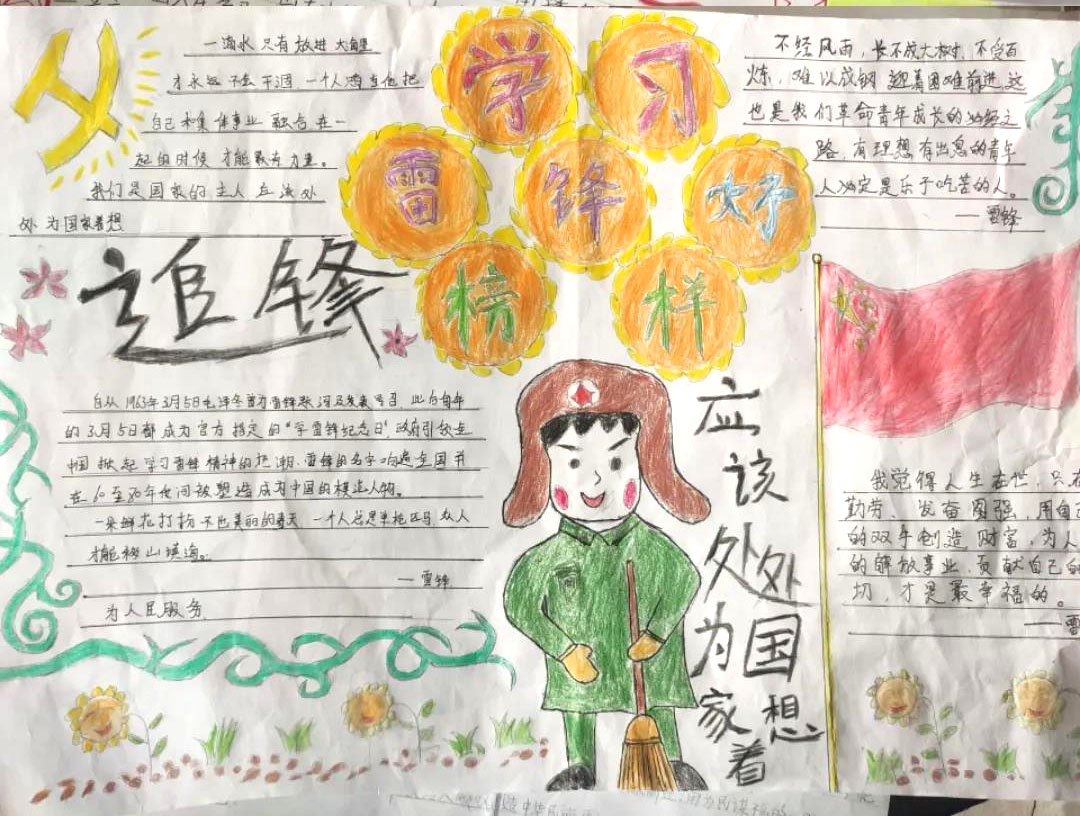 学习
雷锋好
榜样
一滴水只有放进大海里
才永远不会干涸一个人只有当他把
自己和集体事业融合在一
起的时候才能最有力量。
我们是国家的主人应该处
处为国家着想
追锋
不经风雨，长不成大树，不受百
炼，难以成钢 迎着困难前进，这
也是我们革命青年成长的必经之
路，有理想有出息的青年
人必定是乐于吃苦的人。
—雷锋
自从1963年3月5日毛泽东
的3月5日都成为官方指定的“学雷锋纪念日”，政府引领
中国掀起学习雷锋精神的热潮.雷锋的名字响遍全国并
在60至80年代间被塑造成为中国的模
一朵鲜花打扮不出美丽的春天，一个人总是单枪匹马众人
才能移山填海。
—雷锋
为人民服务
应该处处为国家着想
我觉得人生在世，只有
勤劳、发奋图强，用自己
的双手创造财富，为人
的解放事业，贡献自己的
切，才是最幸福的。
—雷